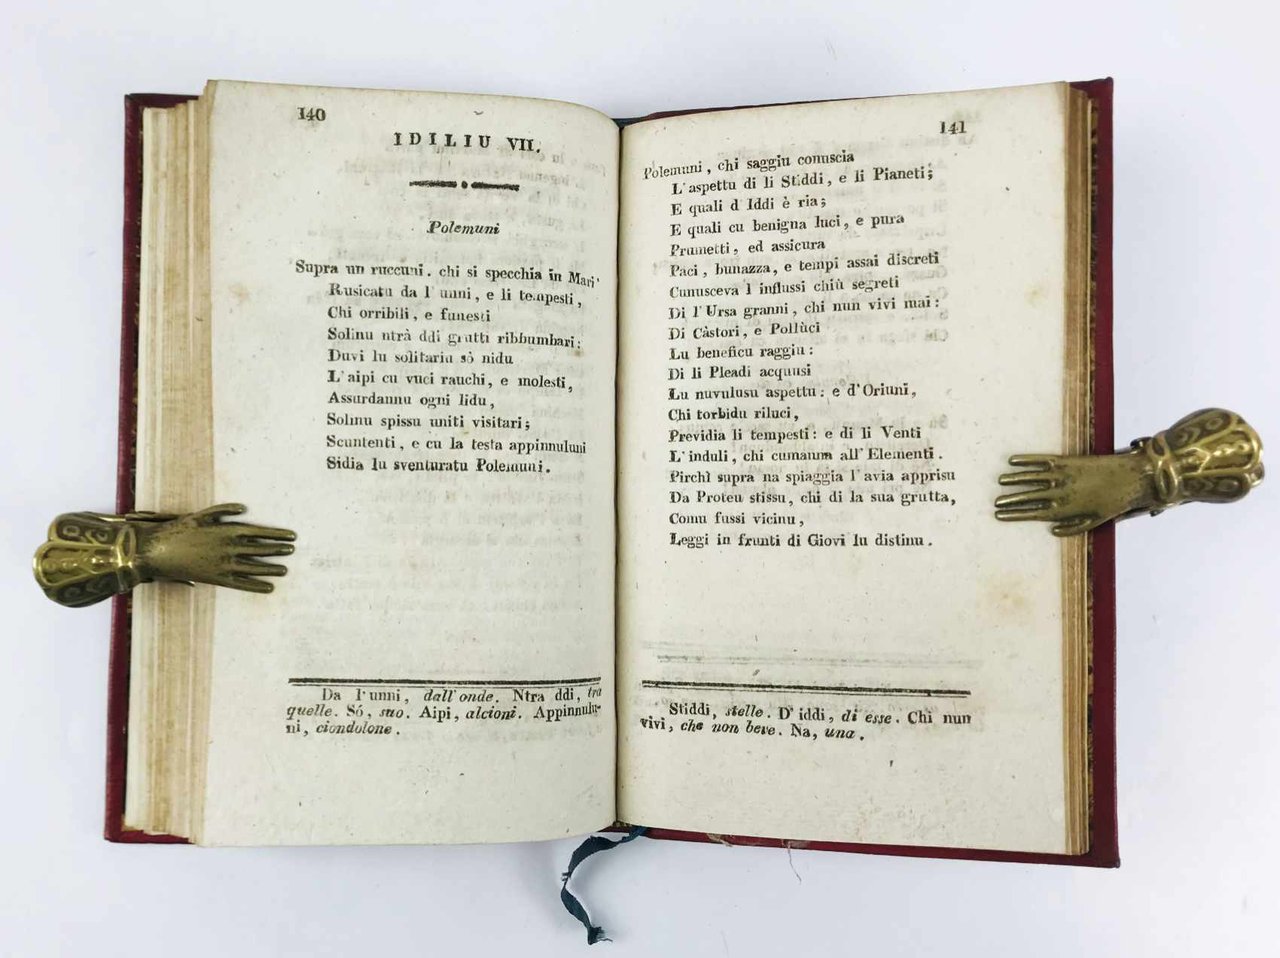 140
IDILIU VII.
Polemuni
Supra un ruccuni. chi si specchia in Mari.
Rusicatu da l' unni, e li tempesti,
Chi orribili, e funesti
Solinu ntrà ddi grutti ribbumbari:
Duvi lu solitariu sò nidu
L'aipi cu vuci rauchi, e molesti,
Assurdannu ogni lidu,
Solinu spissu uniti visitari;
Scuntenti, e cu la testa appinnuluni
Sidia lu sventuratu Polemuni.
Da l'unni, dall'onde. Ntra ddi, tra
quelle. Só, suo. Aipi, alcioni. Appinnulu-
ni, ciondolone.
141
Polemuni, chi saggiu conuscia
L'aspettu di li Stiddi, e li Pianeti;
E quali d Iddi è ria;
E quali cu benigna luci, e pura
Prumetti, ed assicura
Paci, bunazza, e tempi assai discreti
Cunusceva l influssi chiù segreti
Di l'Ursa granni, chi nun vivi mai:
Di Càstori, e Pollùci
Lu beneficu raggiu:
Di li Pleadi acquusi
Lu nuvulusu aspettu: e d'Oriuni,
Chi torbidu riluci,
Previdia li tempesti: e di li Venti
L'induli, chi cumanna all'Elementi.
Pirchì supra na spiaggia l'avia apprisu
Da Proteu stissu, chi di la sua grutta,
Comu fussi vicinu,
Leggi in frunti di Giovi lu distinu.
Stiddi, stelle. D'iddi, di esse. Chi nun
vivi, che non beve. Na, una.